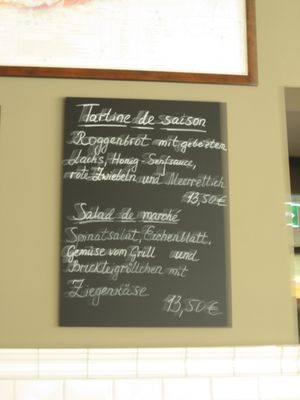 Tartine de saison
Roggenbrot mit gebeiztem
Lachs, Honig-Senfsauce,
rote Zwiebeln und Meerrettich
13,50€
Salad de marché
Spinatsalat, Eichenblatt,
Gemüse vom Grill und
Brickteigröllchen mit
Ziegenkäse
13,50€